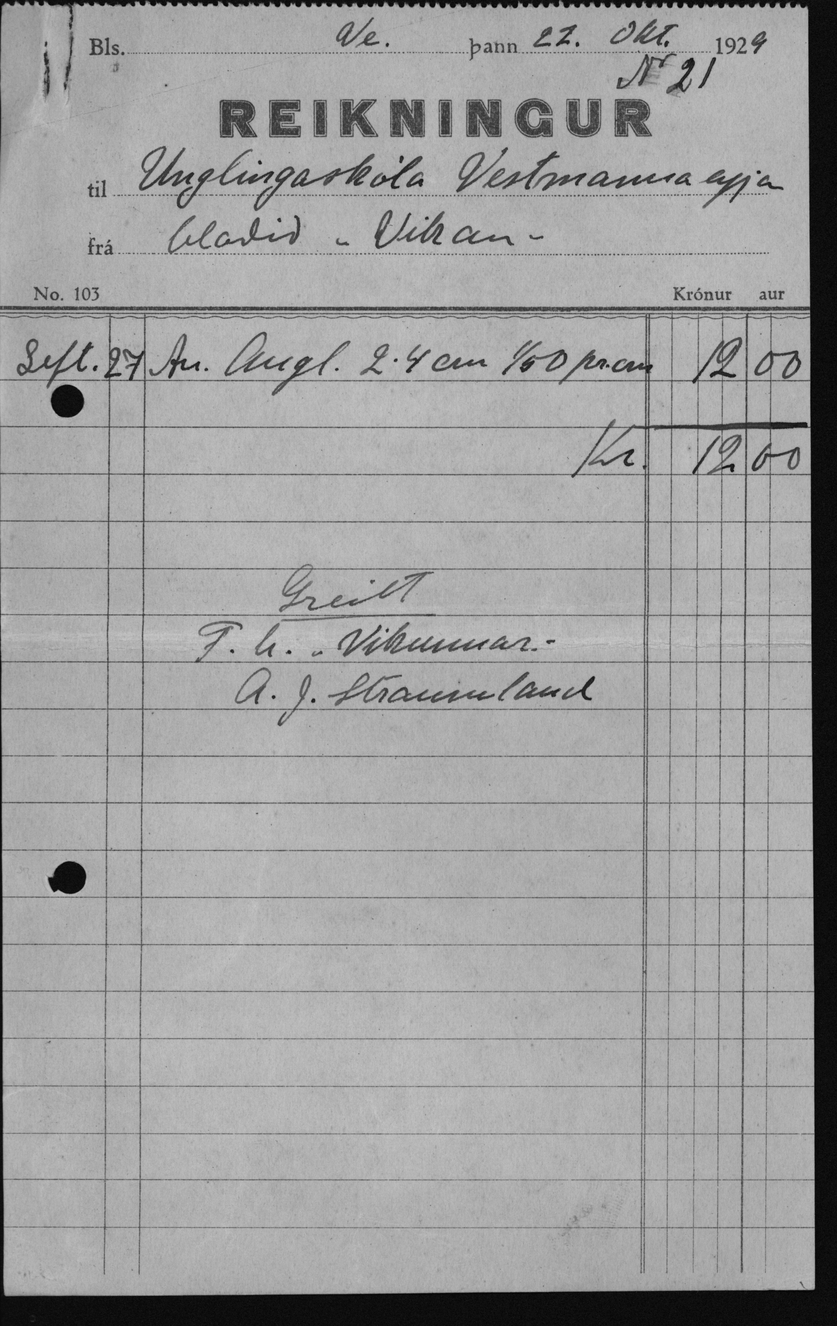 Bls. Ve. þann 22. Okt. 1929
Nr 21
REIKNINGUR
til Unglingaskóla Vestmannaeyja
frá blaðið „Vikan"
No. 103 Krónur aur
Sept. 27 An. Augl. 2·4 cm 1/50 pr. cm 12 00
Kr. 12 00
Greitt
F. h. „Vikunnar"
A. J. Straumland